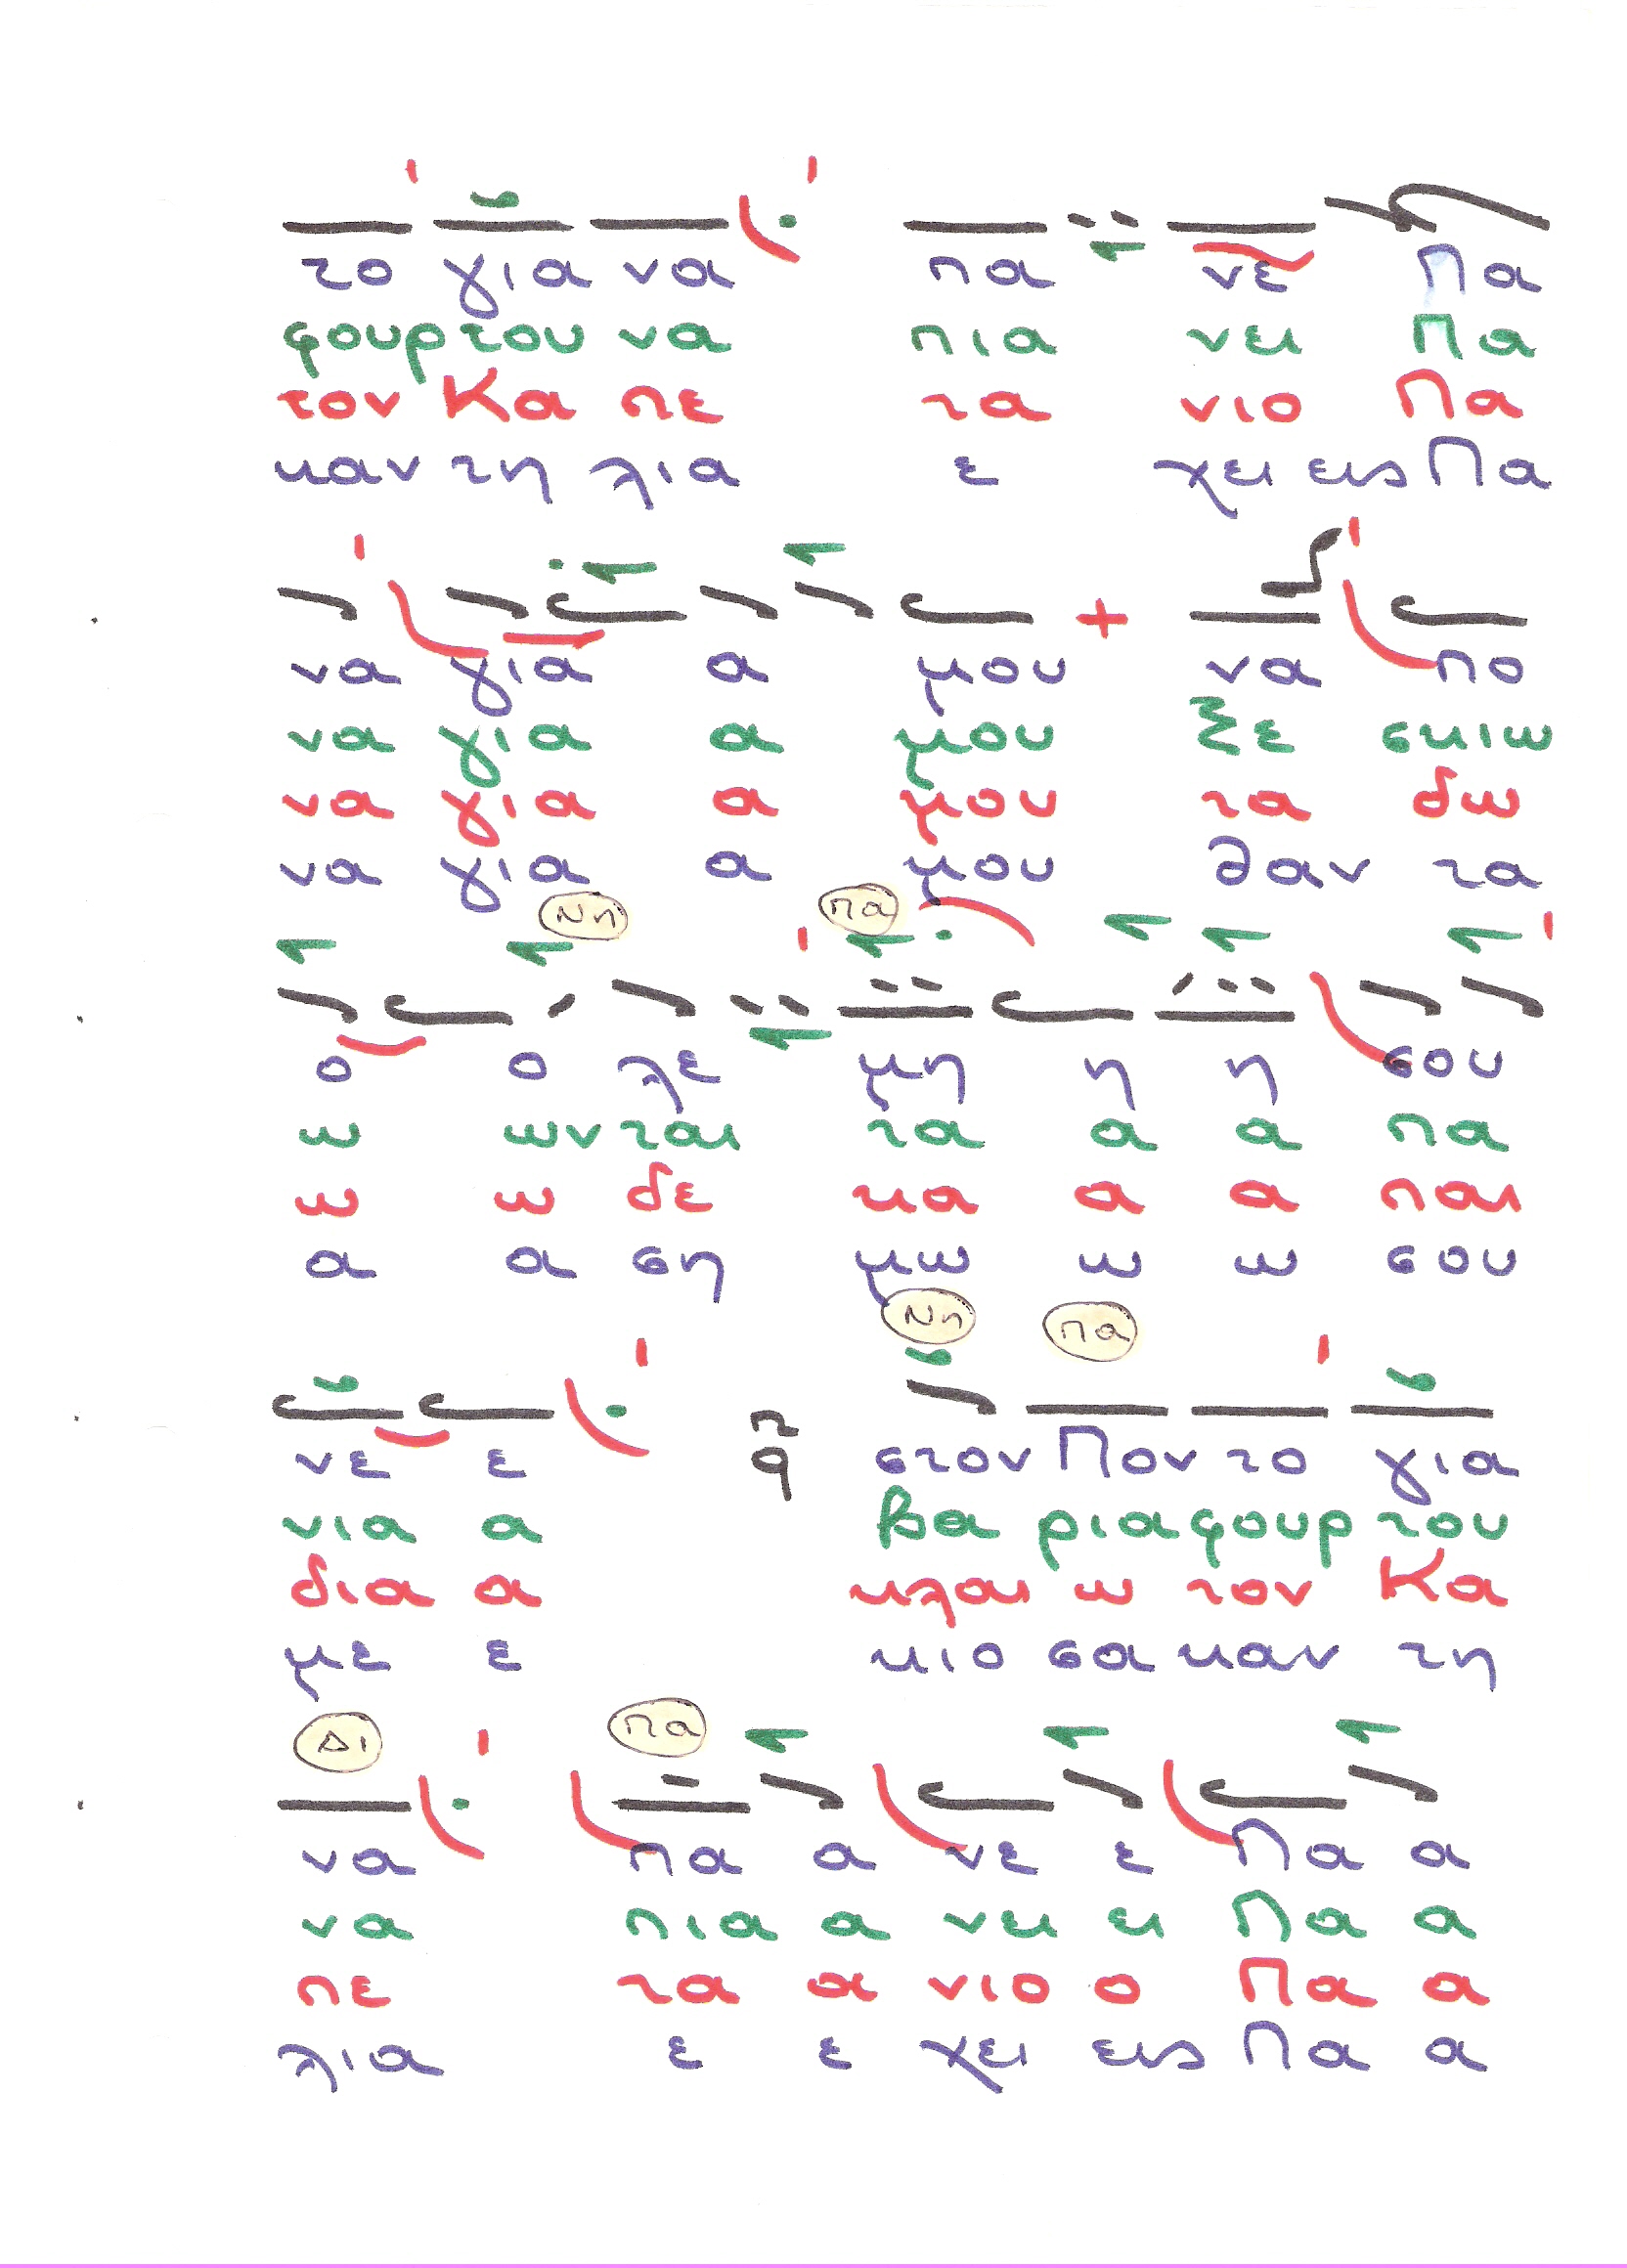 το για να πα νε Πα
φουρ του να πια νει Πα
τον Κα πε τα νιο Πα
καν τη λια ε χει εις Πα
να για α μου να πο
να για α μου Σε σκιω
να για α μου τα δω
να για α μου θαν τα
Νη Πα
ο ο λε μη η η σου
ω ων ται τα α α πα
ω ω δε κα α α παι
α α ση μω ω ω σου
Νη Πα
π
q
νε ε στον Πον το για
νια α βα ρια φουρ του
δια α κλαι ω τον Κα
με ε κιο σα καν τη
Δι Πα
να πα α νε ε Πα α
να πια α νει ει Πα α
πε τα α νιο ο Πα α
λια ε ε χει εις Πα α